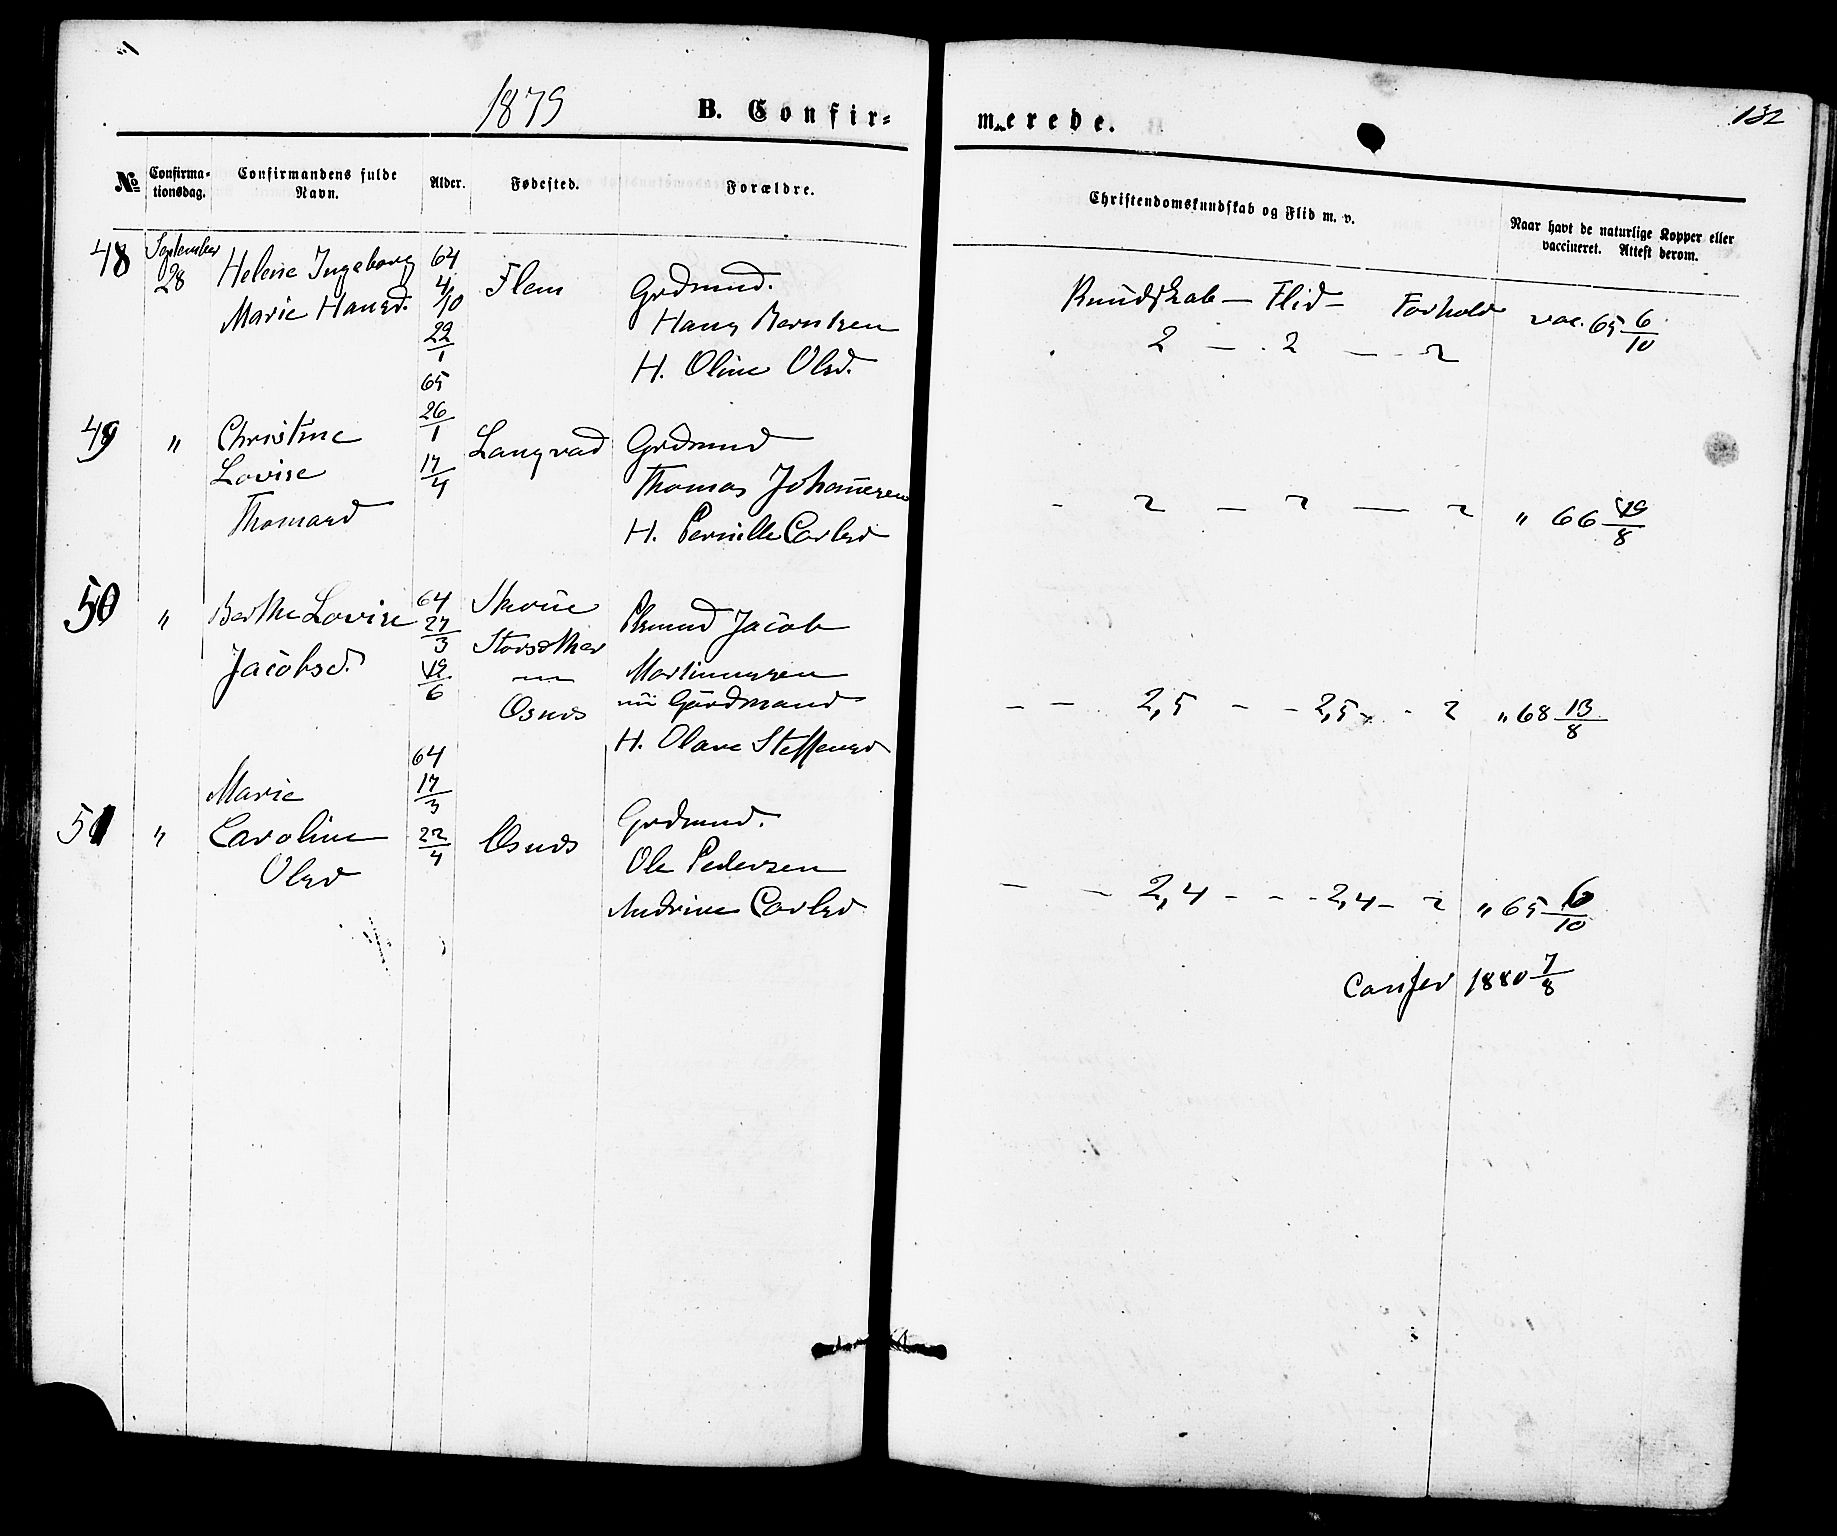 1879 B. Confir- merede. 132
No Confirma-tionsdag. Confirmandens fulde Navn. Alder. Fødested. Forældre. Christendomskundskab og Flid m. v. Naar havt de naturlige Kopper eller vaccineret. Attest derom.
48 September 28 Helene Ingeborg 64 4/10 Flem Grdmnd. Kundskab — Flid — Forhold vac. 65 6/10
Marie Hansd. 29/1 Hans Berntsen 2 — 2 — 2
H. Oline Olsd.
65
49 " Christine 26/1 Langvad Grdmnd
Lovise 17/4 Thomas Johannesen - 2 — 2 — 2 " 66 19/8
Thomasd H. Pernille Carlsd
50 " Berthe Lovise 64 27/3 Plsmnd Jacob
Jacobsd. 19/6 Martinussen
Osnes nu Gårdmand - - 2,5 - - 2,5 - - 2 " 68 13/8
H. Olave Steffensd
64
Marie 17/3
51 " Caroline 22/4 Osnes Grdmnd.
Olsd Ole Pedersen - - 2,4 - - - 2,4 - 2 " 65 6/10
Andrine Carlsd
Confer 1880 7/8